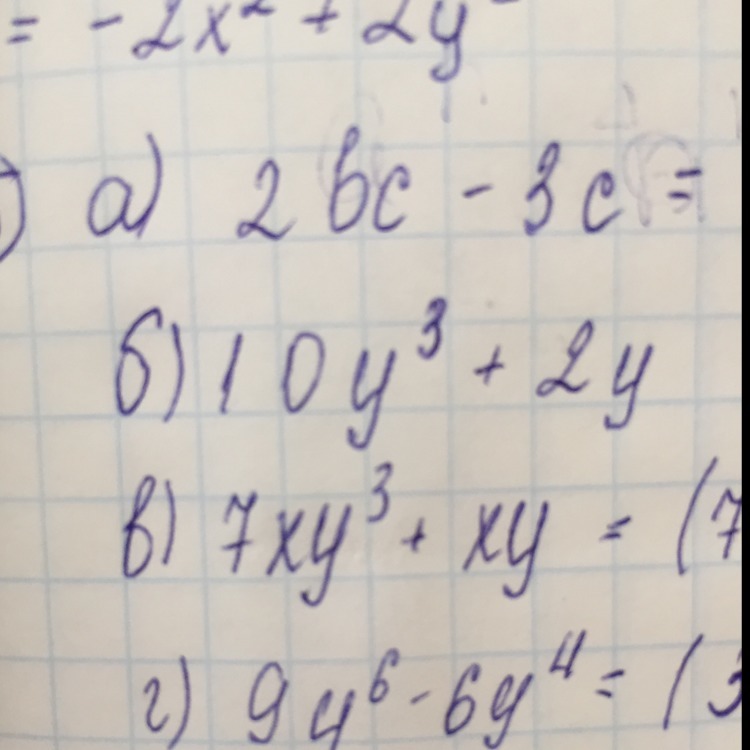 = -2x² + 2y
) а) 2bc - 3c =
б) 10y³ + 2y
в) 7xy³ + xy = (7
г) 9y⁶ - 6y⁴ = (3